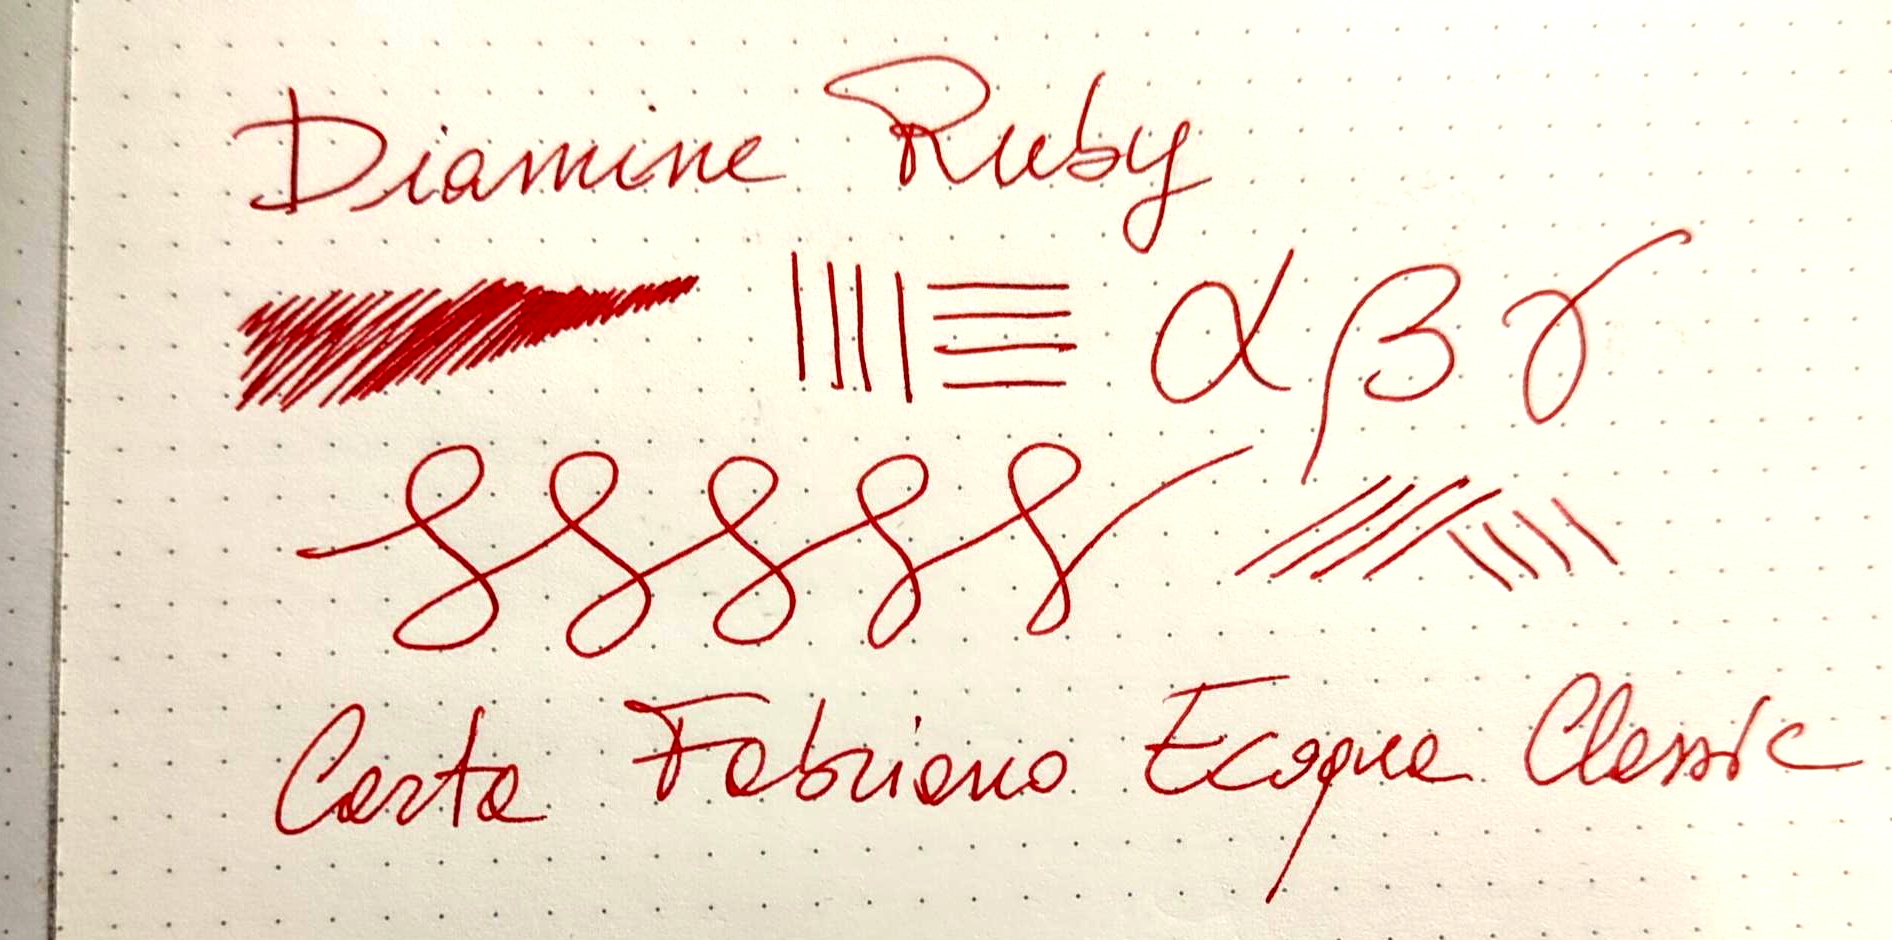 Diamine Ruby
α β γ
Carta Fabriano Ecoqua Classic